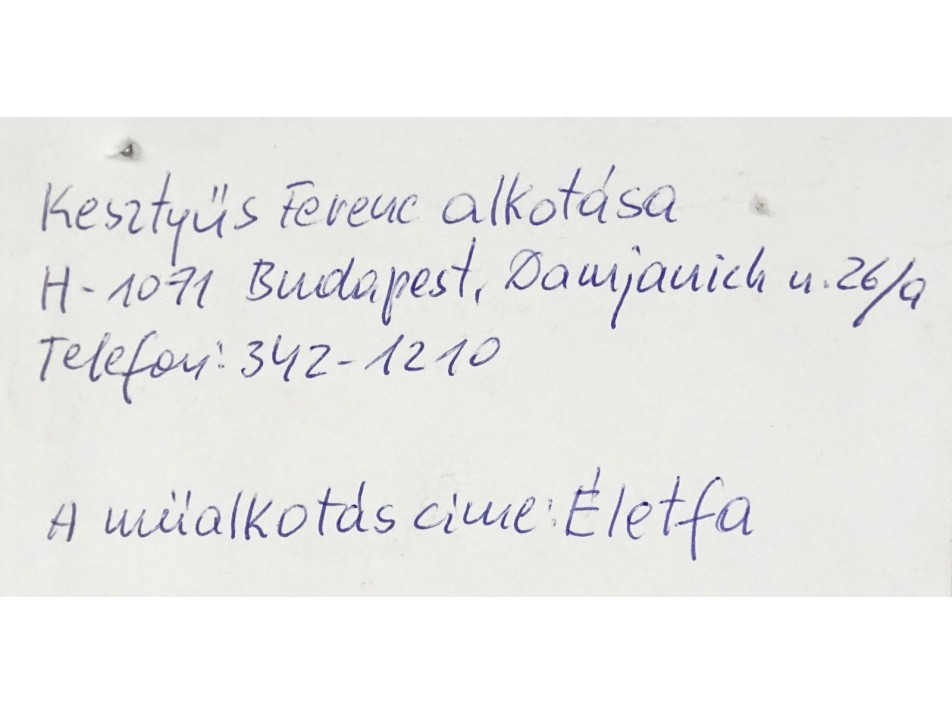 Kesztyűs Ferenc alkotása
H-1071 Budapest, Damjanich u. 26/a
Telefon: 342-1210
A műalkotás cime: Életfa